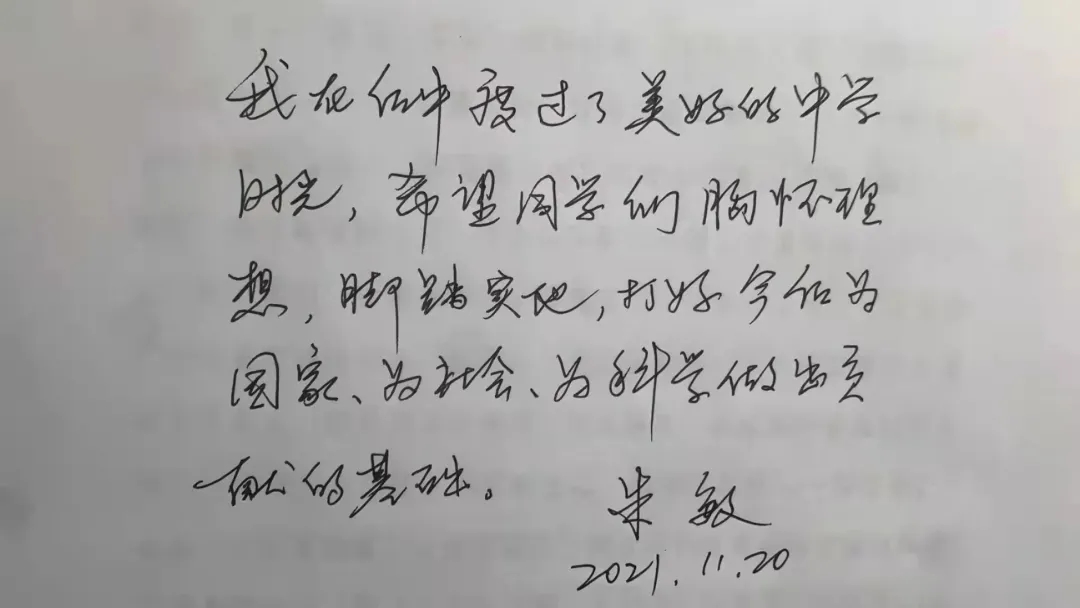 我在中度过了美好的中学
时光，希望同学们胸怀理
想，脚踏实地，打好今后为
国家、为社会、为科学做出贡
献的基础。
朱敏
2021.11.20